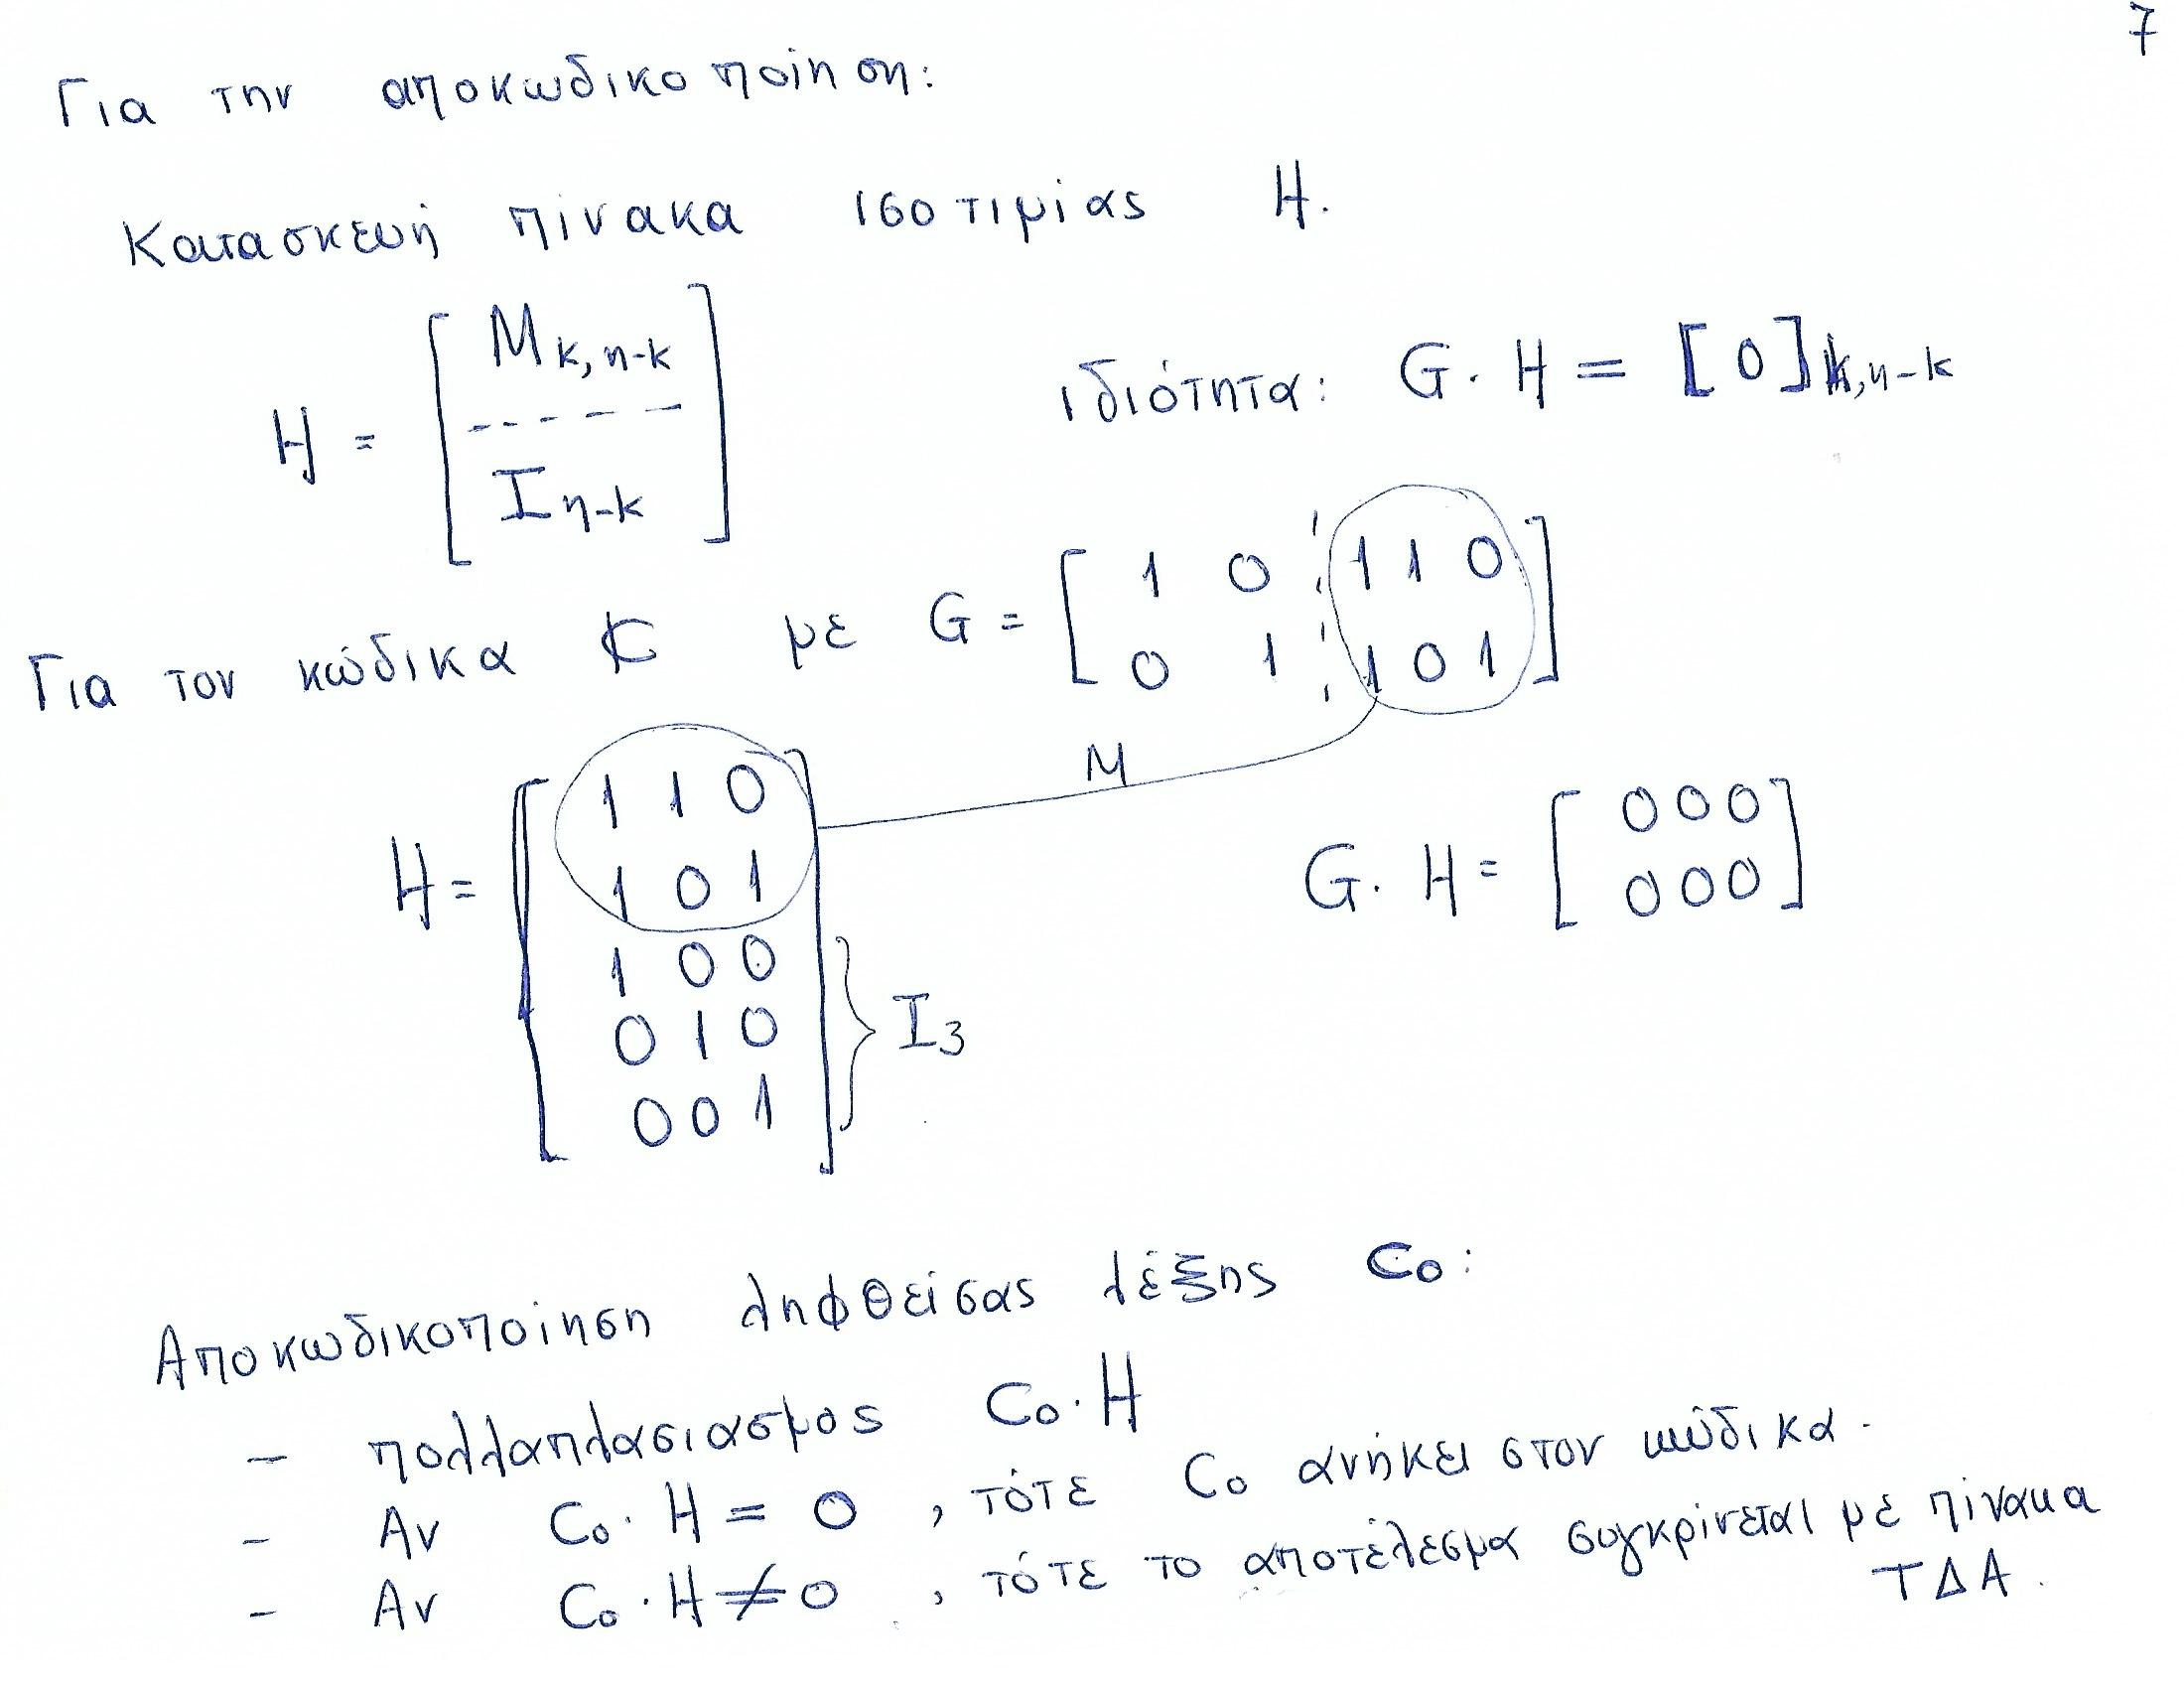 7
Για την αποκωδικοποίηση:
Κατασκευή πίνακα ισοτιμίας H.
H = [ M k, n-k / I n-k ]
ιδιότητα: G · H = [0] k, n-k
Για τον κώδικα C με G = [ 1 0 ¦ 1 1 0
0 1 ¦ 1 0 1 ]
M
H = [ 1 1 0
1 0 1
1 0 0
0 1 0
0 0 1 ] } I3
G · H = [ 0 0 0
0 0 0 ]
Αποκωδικοποίηση ληφθείσας λέξης Co:
- πολλαπλασιασμος Co · H
- Αν Co · H = 0 , τότε Co ανήκει στον κώδικα.
- Αν Co · H ≠ 0 , τότε το αποτέλεσμα συγκρίνεται με πίνακα
ΤΔΑ.